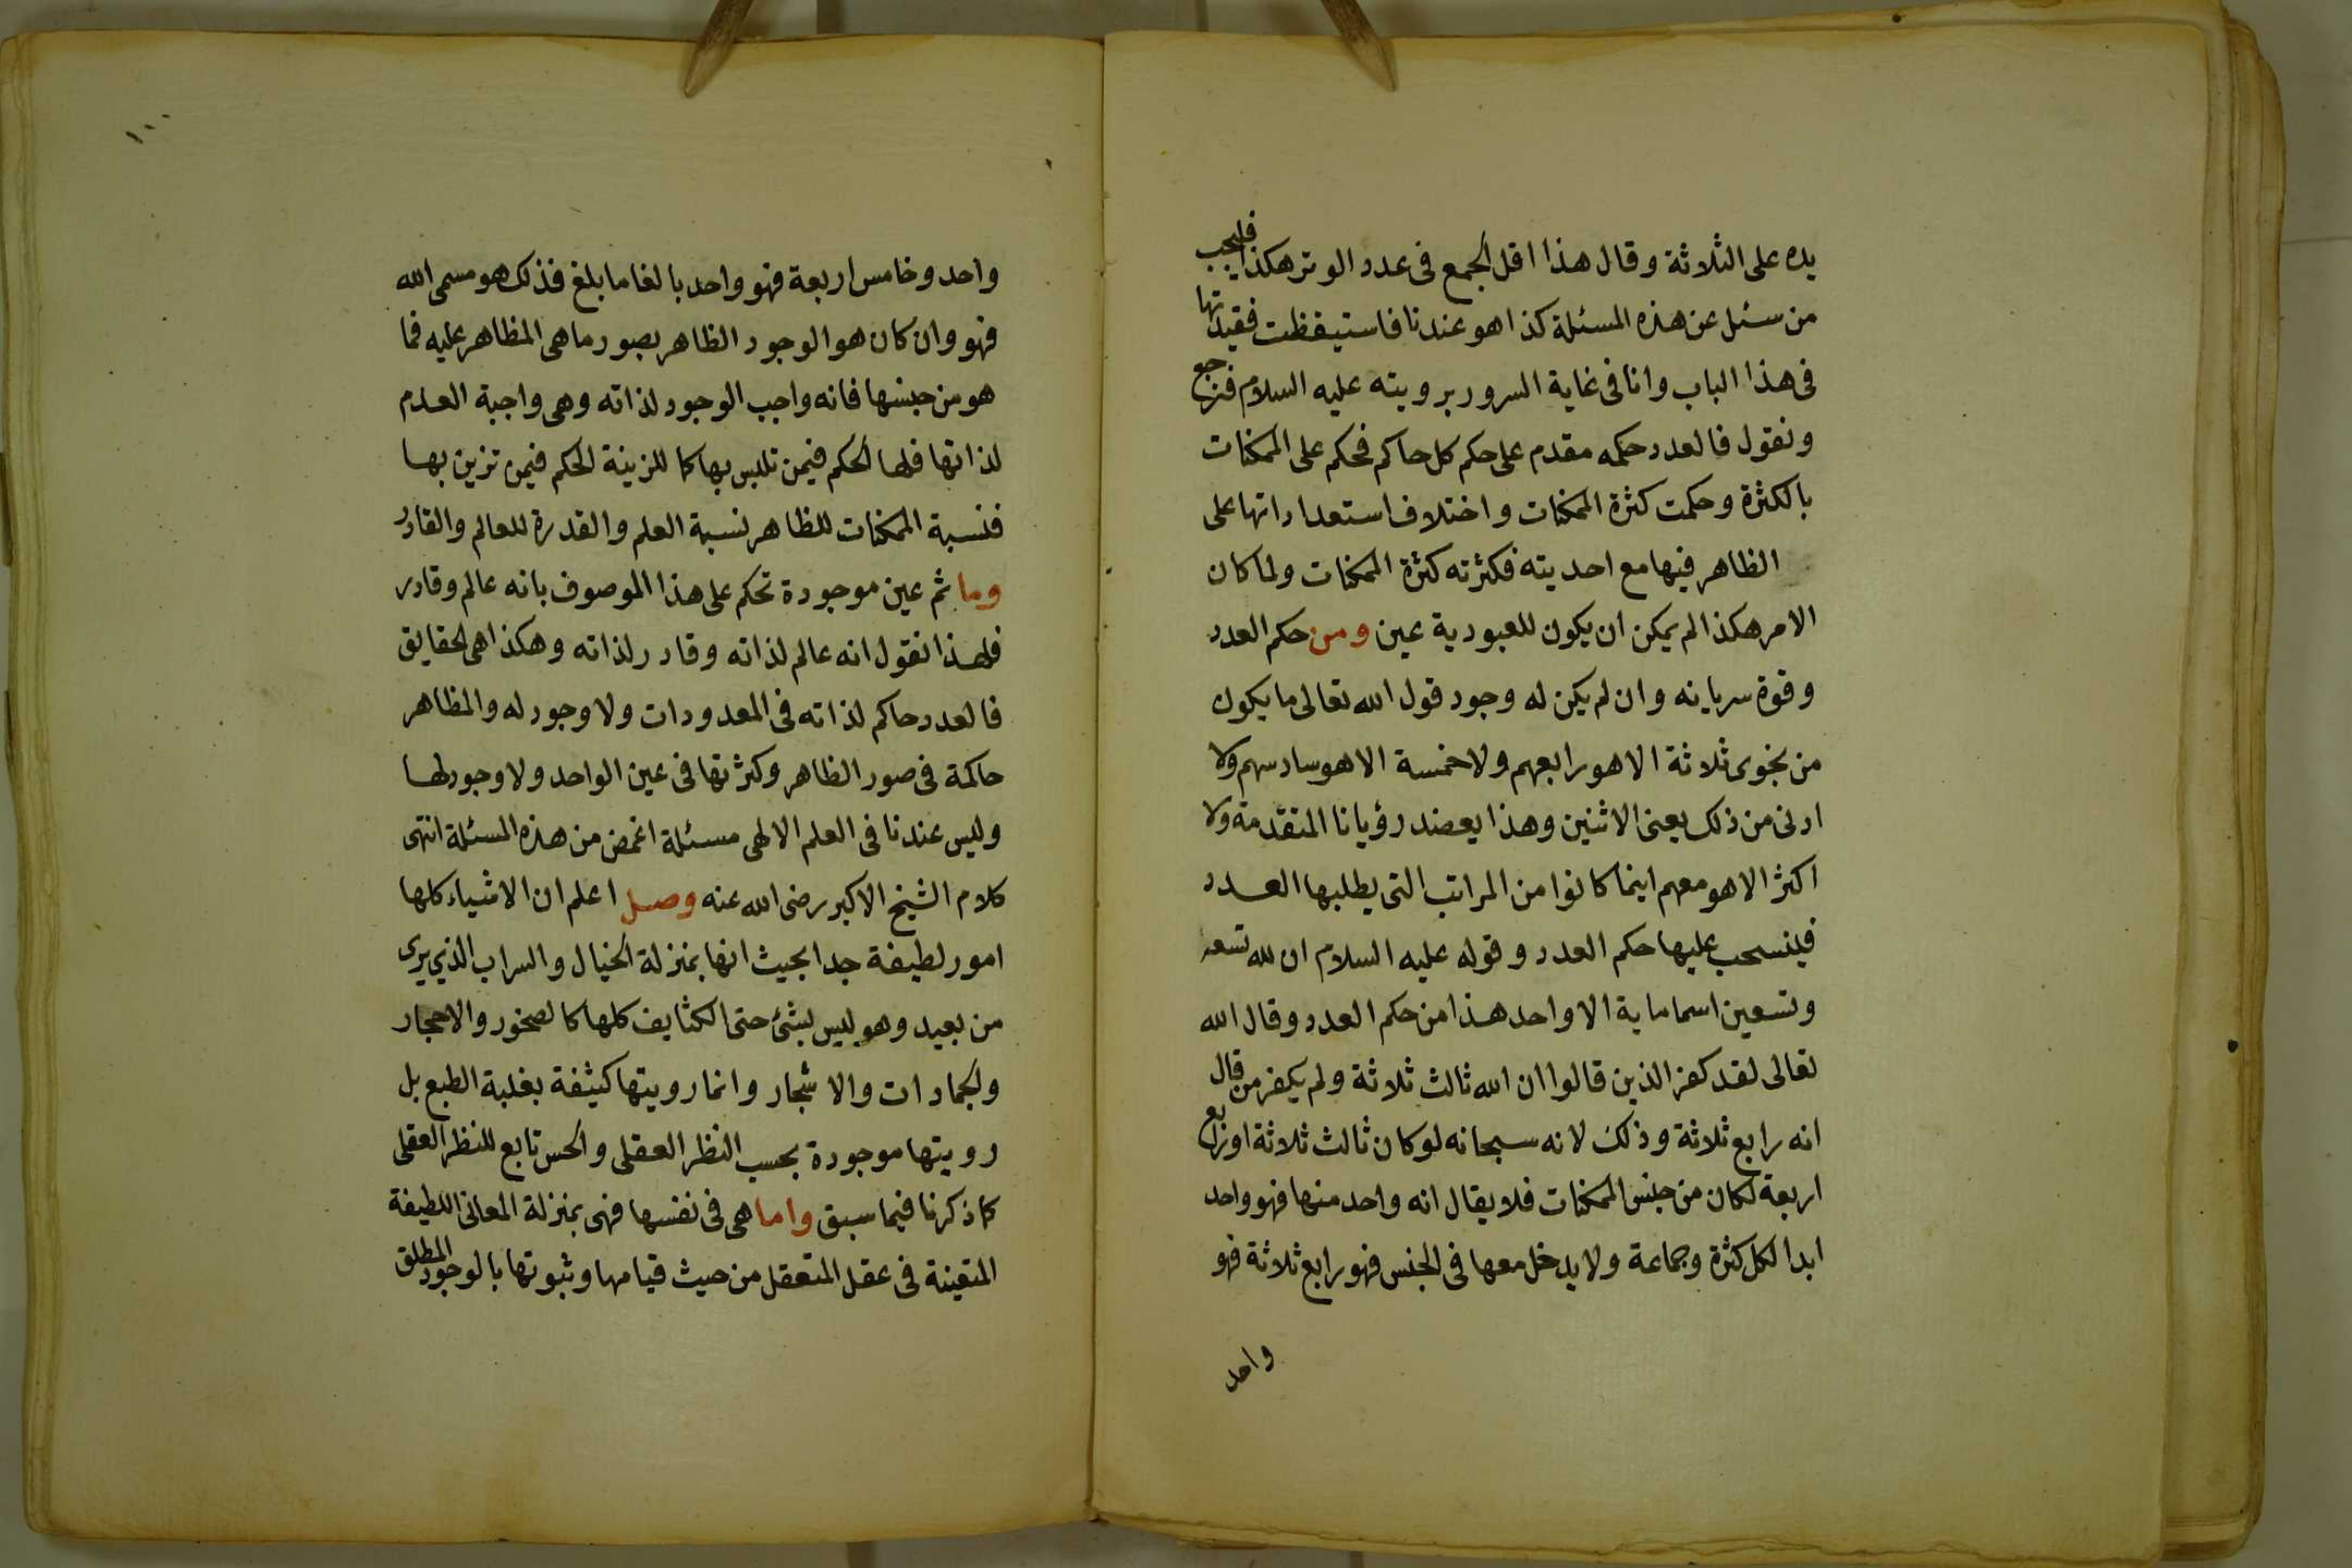 يده على الثلاثة وقال هذا اقل الجمع فى عدد الوتر هكذا فليجب
من سئل عن هذه المسئلة كذا هو عندنا فاستيقظت فقيدتها
فى هذا الباب وانا فى غاية السرور برويته عليه السلام فنرجع
ونقول فالعدد حكمه مقدم على حكم كل حاكم فحكم على الممكنات
بالكثرة وحكمت كثرة الممكنات واختلاف استعداداتها على
الظاهر فيها مع احديته فكثرته كثرة الممكنات ولما كان
الامر هكذا لم يمكن ان يكون للعبودية عين ومن حكم العدد
وقوة سريانه وان لم يكن له وجود قول الله تعالى ما يكون
من نجوى ثلاثة الا هو رابعهم ولا خمسة الا هو سادسهم ولا
ادنى من ذلك يعنى الاثنين وهذا يعضد رؤيانا المتقدمة ولا
اكثر الا هو معهم اينما كانوا من المراتب التى يطلبها العدد
فينسحب عليها حكم العدد وقوله عليه السلام ان لله تسعه
وتسعين اسما ماية الا واحد هذا من حكم العدد وقال الله
تعالى لقد كفر الذين قالوا ان الله ثالث ثلاثة ولم يكفر من قال
انه رابع ثلاثة وذلك لانه سبحانه لو كان ثالث ثلاثة او رابع
اربعة لكان من جنس الممكنات فلا يقال انه واحد منها فهو واحد
ابدا لكل كثرة وجماعة ولا يدخل معها فى الجنس فهو رابع ثلاثة فهو
واحد
١٠٠
واحد وخامس اربعة فهو واحد بالغا ما بلغ فذلك هو مسمى الله
فهو وان كان هو الوجود الظاهر بصور ما هى المظاهر عليه فما
هو من جنسها فانه واجب الوجود لذاته وهى واجبة العدم
لذاتها فلها الحكم فيمن تلبس بها كما للزينة الحكم فيمن تزين بها
فنسبة الممكنات للظاهر نسبة العلم والقدرة للعالم والقادر
وما ثم عين موجودة تحكم على هذا الموصوف بانه عالم وقادر
فلهذا نقول انه عالم لذاته وقادر لذاته وهكذا هى الحقايق
فالعدد حاكم لذاته فى المعدودات ولا وجود له والمظاهر
حاكمة فى صور الظاهر وكثرتها فى عين الواحد ولا وجود لها
وليس عندنا فى العلم الالهى مسئلة اغمض من هذه المسئلة انتهى
كلام الشيخ الاكبر رضى الله عنه وصل اعلم ان الاشياء كلها
امور لطيفة جدا بحيث انها بمنزلة الخيال والسراب الذي يرى
من بعيد وهو ليس بشئ حتى الكثايف كلها كالصخور والاحجار
والجمادات والاشجار وانما رويتها كثيفة بغلبة الطبع بل
رويتها موجودة بحسب النظر العقلى والحس تابع للنظر العقلى
كما ذكرنا فيما سبق واما هى فى نفسها فهى بمنزلة المعانى اللطيفة
المتعينة فى عقل المتعقل من حيث قيامها وثبوتها بالوجود المطلق